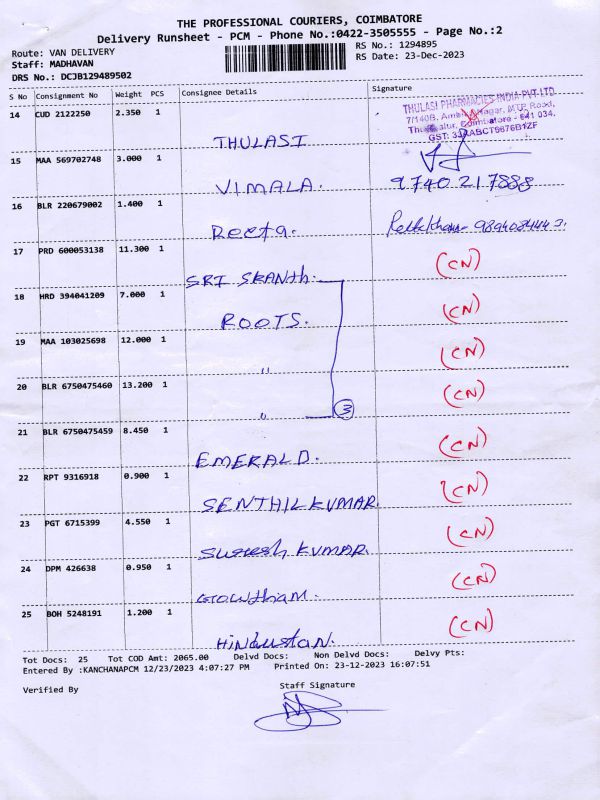 THE PROFESSIONAL COURIERS, COIMBATORE
Delivery Runsheet - PCM - Phone No.:0422-3505555 - Page No.:2
Route: VAN DELIVERY RS No.: 1294895
Staff: MADHAVAN RS Date: 23-Dec-2023
DRS No.: DCJB129489502
S No Consignment No Weight PCS Consignee Details Signature
14 CUD 2122250 2.350 1
THULASI PHARMACIES INDIA PVT LTD.
7/140B, Nagar, MTP Road,
Coimbatore - 641 034.
THULASI
15 MAA 569702748 3.000 1
VIMALA. 9740217888
16 BLR 220679002 1.400 1
Reeta.
17 PRD 600053138 11.300 1 (CN)
SRI SKANTH.
18 HRD 394041209 7.000 1 (CN)
ROOTS.
19 MAA 103025698 12.000 1 (CN)
"
20 BLR 6750475460 13.200 1 (CN)
" 3
21 BLR 6750475459 8.450 1 (CN)
EMERALD.
22 RPT 9316918 0.900 1 (CN)
SENTHIL KUMAR
23 PGT 6715399 4.550 1 (CN)
Suresh KUMAR.
24 DPM 426638 0.950 1 (CN)
Gowtham.
25 BOH 5248191 1.200 1 (CN)
Hindustan.
Tot Docs: 25 Tot COD Amt: 2065.00 Delvd Docs: Non Delvd Docs: Delvy Pts:
Entered By :KANCHANAPCM 12/23/2023 4:07:27 PM Printed On: 23-12-2023 16:07:51
Verified By Staff Signature